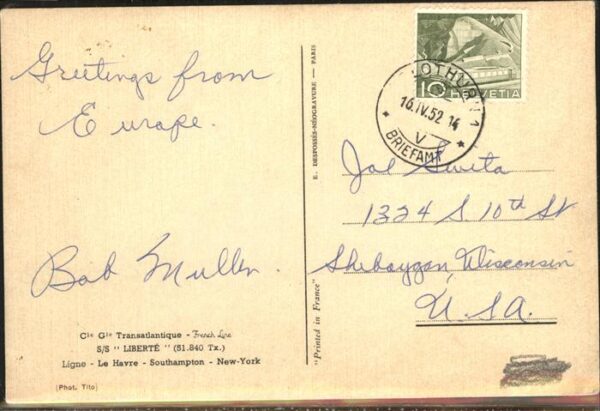 Greetings from
Europe.
Bob Muller.
Cie Gle Transatlantique - French Line
S/S " LIBERTÉ " (51.840 Tx.)
Ligne - Le Havre - Southampton - New-York
(Phot. Tito)
E. DESFOSSÉS-NÉOGRAVURE — PARIS
"Printed in France"
10 HELVETIA
16.IV.52 14
V
* BRIEFAMT *
1324 S. 10th St
Sheboygan, Wisconsin
U.S.A.